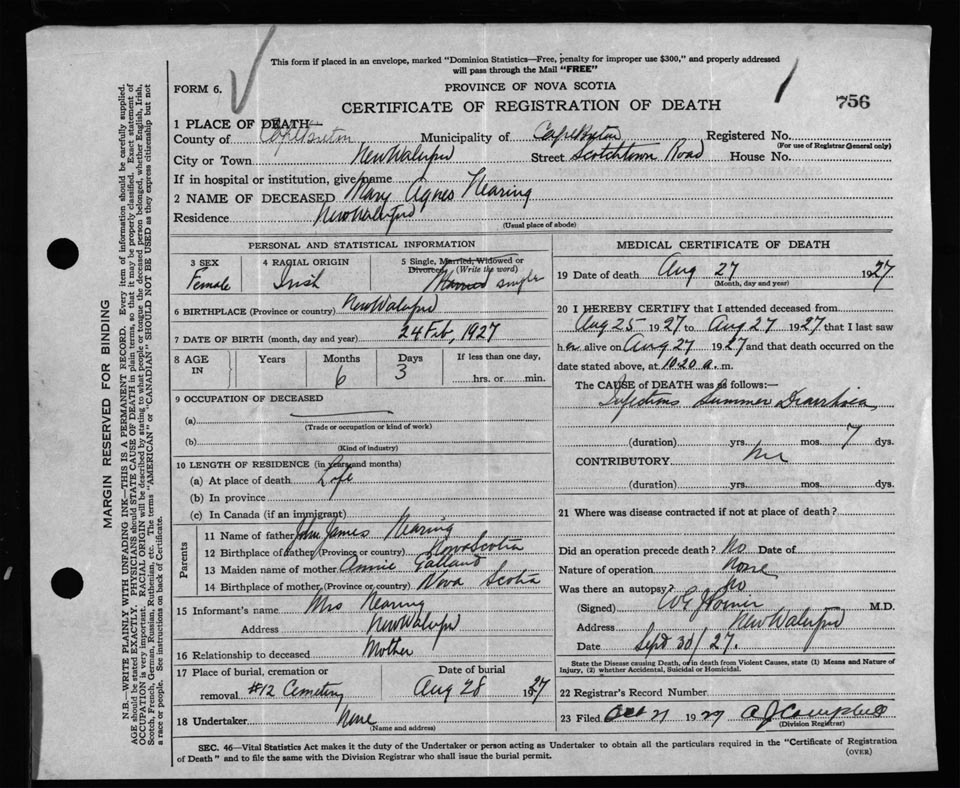 This form if placed in an envelope, marked "Dominion Statistics—Free, penalty for improper use $300," and properly addressed
will pass through the Mail "FREE"
FORM 6.
PROVINCE OF NOVA SCOTIA
CERTIFICATE OF REGISTRATION OF DEATH
756
1 PLACE OF DEATH
County of Cape Breton Municipality of Cape Breton Registered No.
(For use of Registrar General only)
City or Town New Waterford Street Scotchtown Road House No.
If in hospital or institution, give name
2 NAME OF DECEASED Mary Agnes Nearing
Residence New Waterford
(Usual place of abode)
PERSONAL AND STATISTICAL INFORMATION
3 SEX
Female
4 RACIAL ORIGIN
Irish
5 Single, Married, Widowed or
Divorced. (Write the word)
Married single
6 BIRTHPLACE (Province or country) New Waterford
7 DATE OF BIRTH (month, day and year) 24 Feb, 1927
8 AGE IN Years Months Days If less than one day,
6 3 hrs. or min.
9 OCCUPATION OF DECEASED
(a)
(Trade or occupation or kind of work)
(b)
(Kind of industry)
10 LENGTH OF RESIDENCE (in years and months)
(a) At place of death Life
(b) In province
(c) In Canada (if an immigrant)
Parents
11 Name of father John James Nearing
12 Birthplace of father (Province or country) Nova Scotia
13 Maiden name of mother Annie
14 Birthplace of mother (Province or country) Nova Scotia
15 Informant's name Mrs Nearing
Address New Waterford
16 Relationship to deceased Mother
17 Place of burial, cremation or Date of burial
removal #12 Cemetery Aug 28 1927
18 Undertaker None
(Name and address)
MEDICAL CERTIFICATE OF DEATH
19 Date of death Aug 27 1927
(Month, day and year)
20 I HEREBY CERTIFY that I attended deceased from
Aug 25 1927 to Aug 27 1927 that I last saw
her alive on Aug 27 1927 and that death occurred on the
date stated above, at 10.20 a. m.
The CAUSE of DEATH was as follows:—
Infectious Summer Diarrhoea
(duration) yrs. mos. 7 dys.
CONTRIBUTORY
(duration) yrs. mos. dys.
21 Where was disease contracted if not at place of death?
Did an operation precede death? No Date of
Nature of operation None
Was there an autopsy? No
(Signed) M.D.
Address New Waterford
Date Sept 30/27.
State the Disease causing Death, or in death from Violent Causes, state (1) Means and Nature of
Injury, (2) whether Accidental, Suicidal or Homicidal.
22 Registrar's Record Number
23 Filed 1927 A J Campbell
(Division Registrar)
SEC. 46—Vital Statistics Act makes it the duty of the Undertaker or person acting as Undertaker to obtain all the particulars required in the "Certificate of Registration
of Death" and to file the same with the Division Registrar who shall issue the burial permit.
(OVER)
MARGIN RESERVED FOR BINDING
N.B.—WRITE PLAINLY WITH UNFADING INK—THIS IS A PERMANENT RECORD. Every item of information should be carefully supplied.
AGE should be stated EXACTLY. PHYSICIANS should STATE CAUSE OF DEATH in plain terms, so that it may be properly classified. Exact statement of
OCCUPATION is very important. RACIAL ORIGIN will be described by stating to what people or tongue the deceased person belonged, whether English, Irish,
Scotch, French, German, Russian, Ruthenian, etc. The terms "AMERICAN" or "CANADIAN" SHOULD NOT BE USED as they express citizenship but not
a race or people. See instructions on back of Certificate.